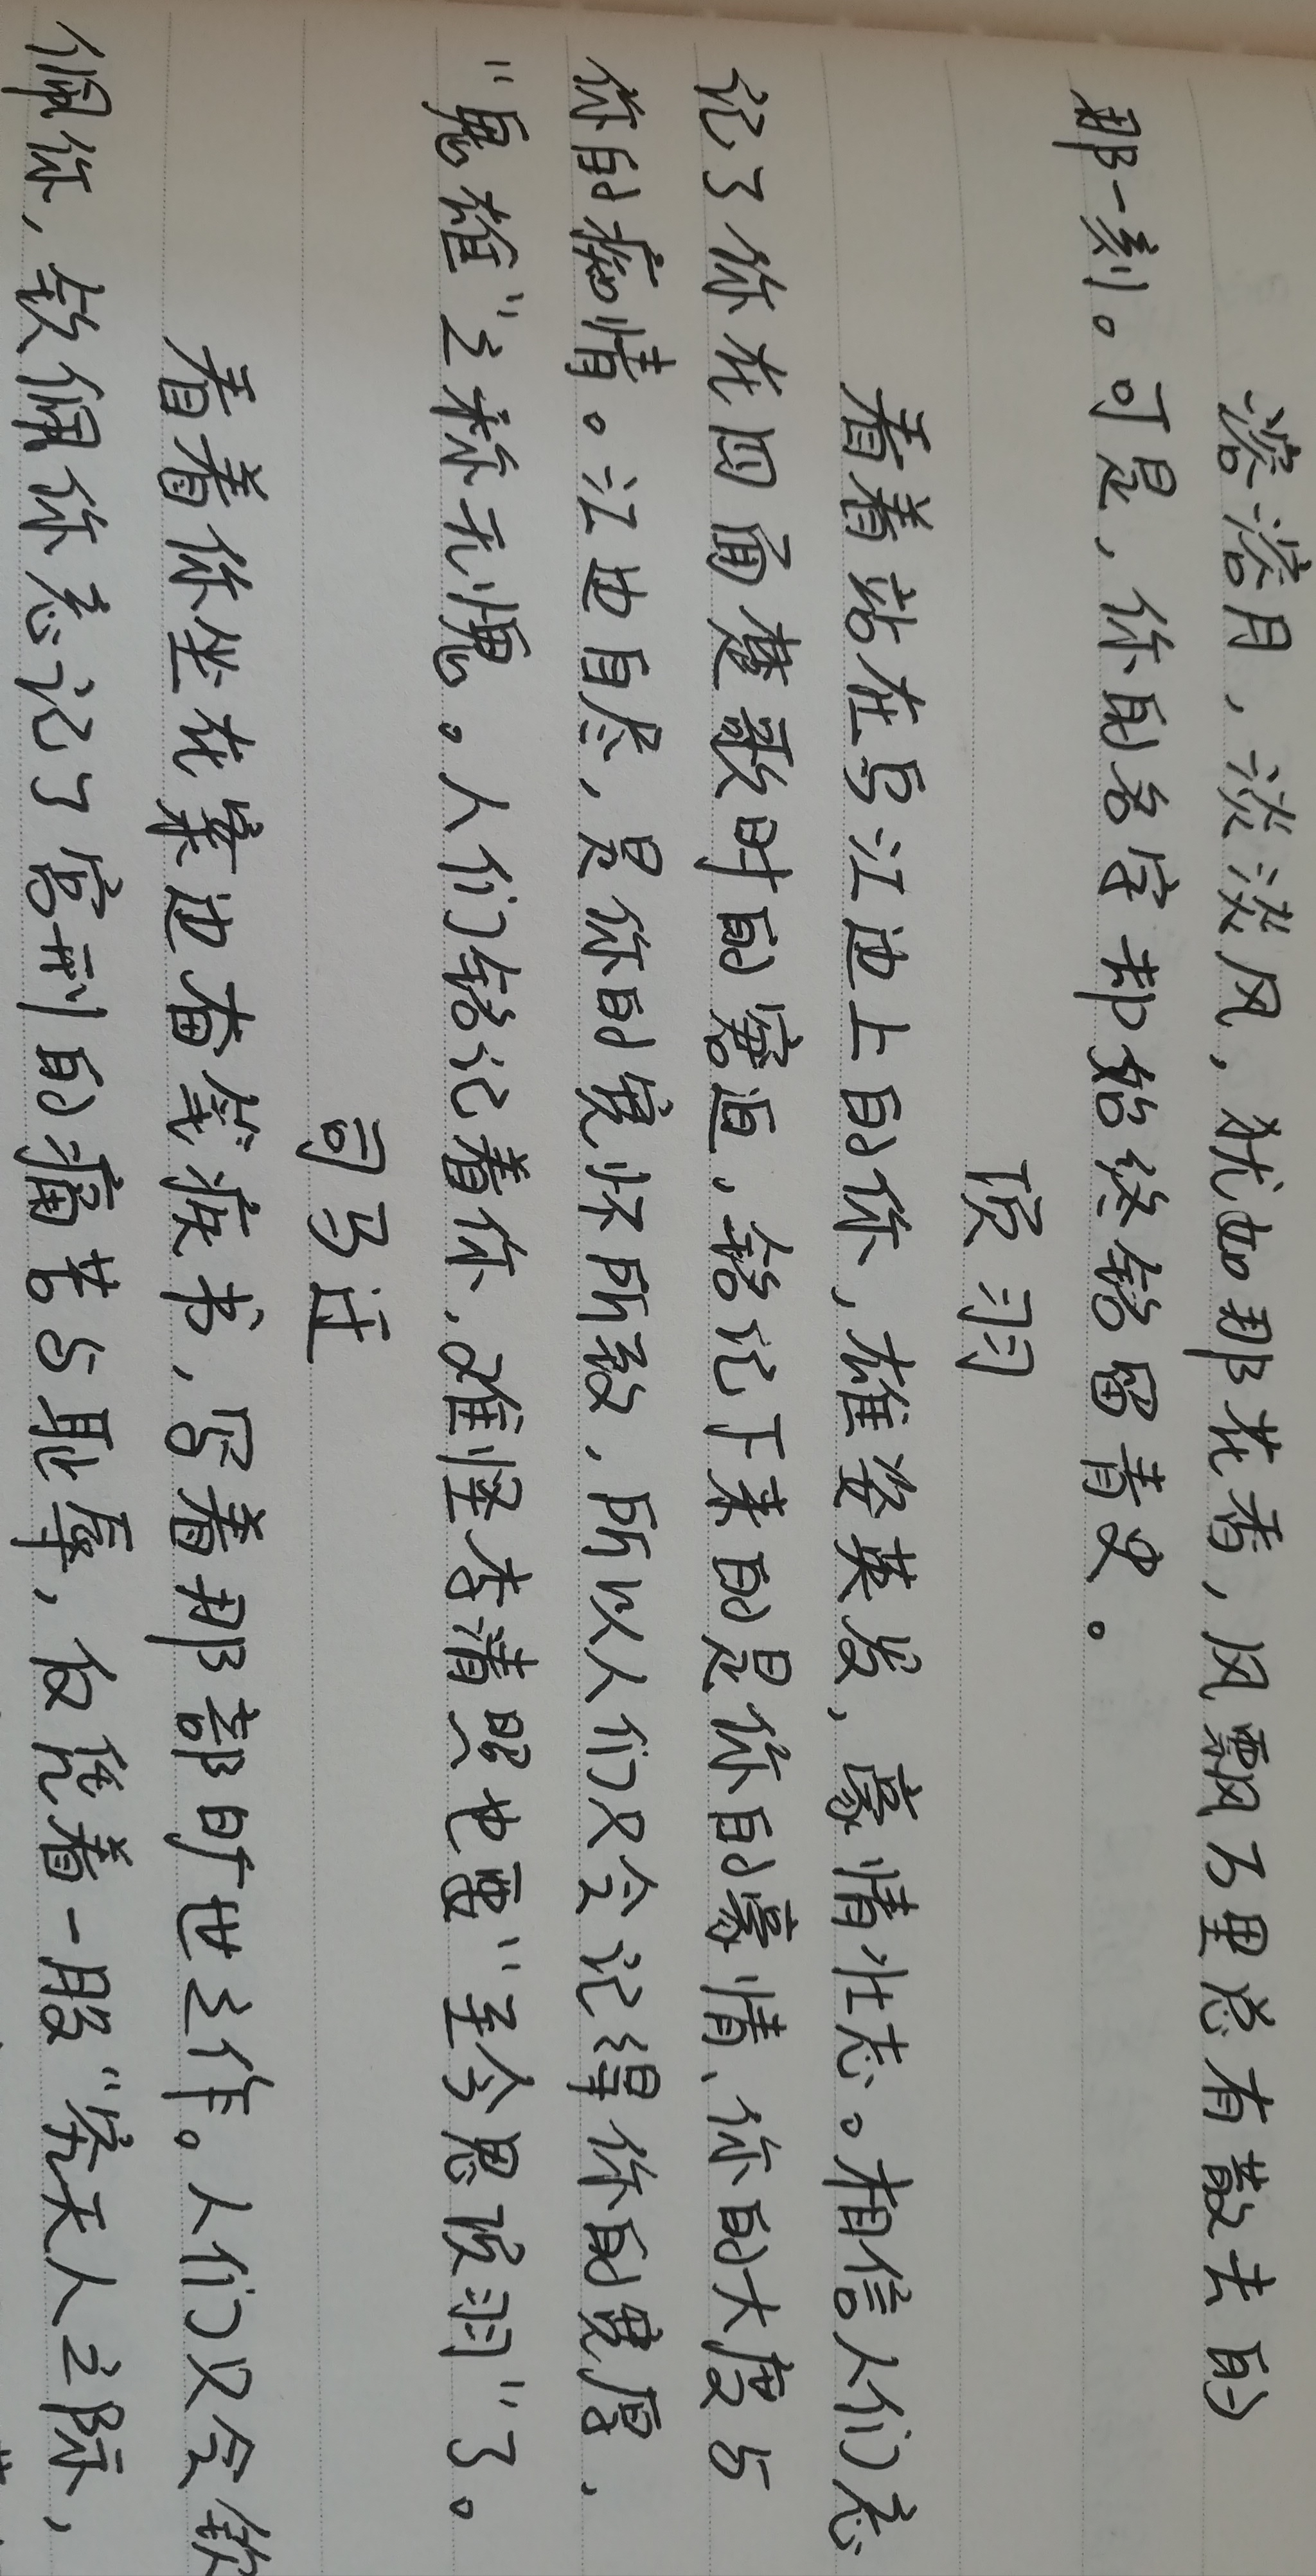 溶溶月，淡淡风，犹如那花香，风飘万里总有散去的
那一刻。可是，你的名字却始终铭留青史。
项羽
看着站在乌江边上的你，雄姿英发，豪情壮志。相信人们忘
记了你在四面楚歌时的窘迫，铭记下来的是你的豪情、你的大度与
你的痴情。江边自尽，是你的宽怀所致，所以人们只会记得你的宽厚，
"鬼雄"之称无愧。人们铭记着你，难怪李清照也要"至今思项羽"了。
司马迁
看着你坐在案边奋笔疾书，写着那部旷世之作。人们只会钦
佩你，钦佩你忘记了宫刑的痛苦与耻辱，仅凭着一股"究天人之际，